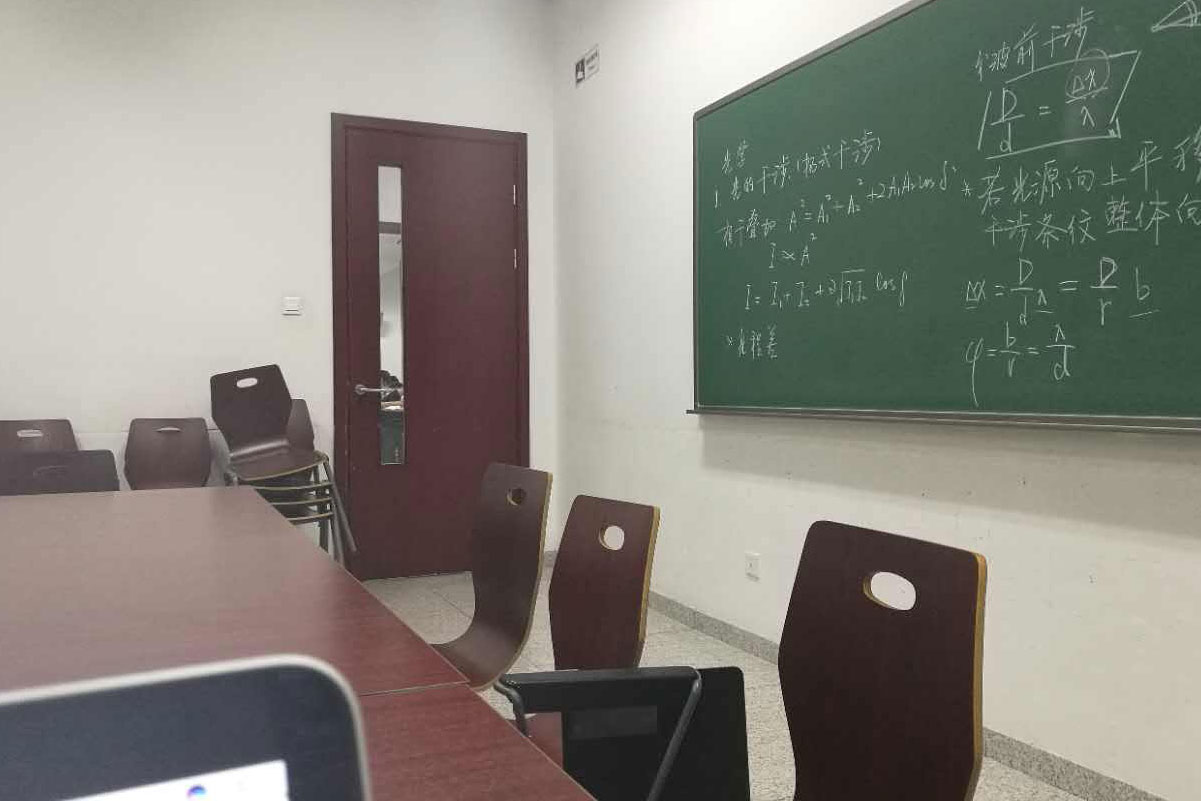 光学
1. 光的干涉(杨式干涉)
相干叠加 A²=A₁²+A₂²+2A₁A₂cosδ
I∝A²
I=I₁+I₂+2√I₁I₂ cosδ
*光程差
分波前干涉
D/d=Δx/λ
*若光源向上平移
干涉条纹整体向
Δx=D/d λ=D/r b
φ=b/r=λ/d